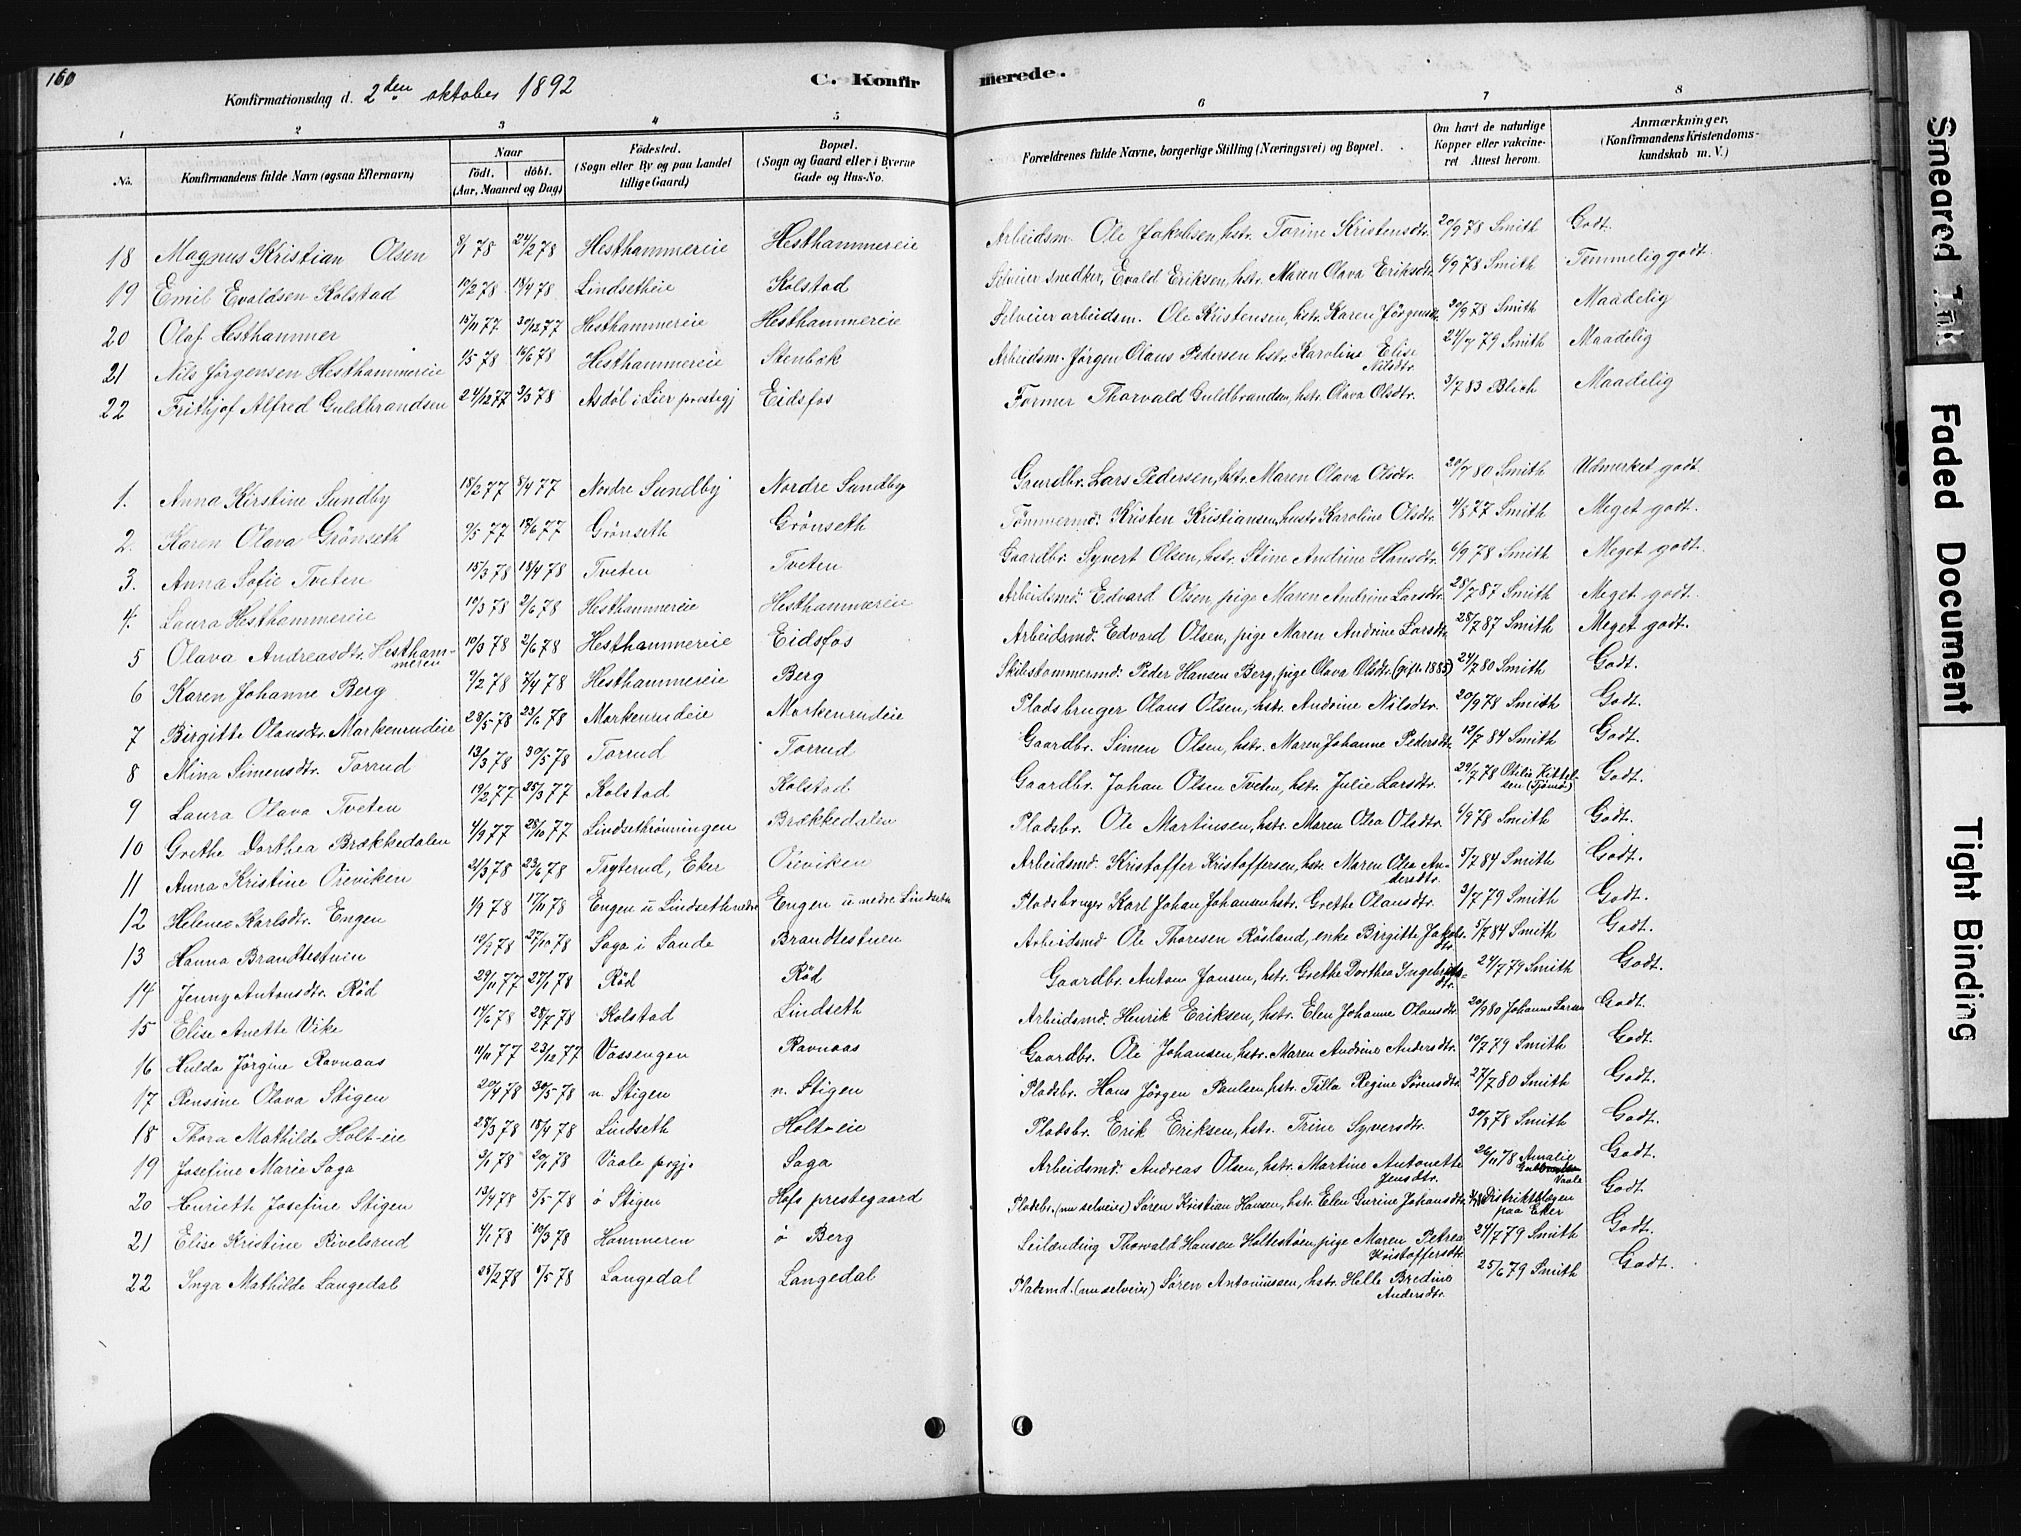 160
Konfirmationsdag d. 2den oktober 1892
C. Konfirmerede.
1 2 3 4 5 6 7 8
No. Konfirmandens fulde Navn (ogsaa Efternavn) Naar födt. döbt. (Aar, Maaned og Dag) Födested. (Sogn eller By og paa Landet tillige Gaard) Bopæl. (Sogn og Gaard eller i Byerne Gade og Hus-No. Forældrenes fulde Navne, borgerlige Stilling (Næringsvei) og Bopæl. Om havt de naturlige Kopper eller vakcineret Attest herom. Anmærkninger. (Konfirmandens Kristendomskundskab m. V.)
18 Magnus Kristian Olsen 8/1 78 24/2 78 Hesthammereie Hesthammereie Arbeidsm. Ole Jakobsen, hstr. Torine Kristensdtr. 20/9 78 Smith Godt.
19 Emil Evaldsen Kolstad 19/2 78 13/4 78 Lindsetheie Kolstad Selveier snedker, Evald Eriksen, hstr. Maren Olava Eriksdtr. 6/9 78 Smith Temmelig godt.
20 Olaf Hesthammer 15/11 77 30/12 77 Hesthammereie Hesthammereie Selveier arbeidsm. Ole Kristensen, hstr. Karen Jörgensdtr. 20/9 78 Smith Maadelig
21 Nils Jörgensen Hesthammereie 1/5 78 16/6 78 Hesthammereie Stenbok Arbeidsm. Jörgen Olaus Pedersen hstr. Karoline Elise Nilsdtr. 24/7 79 Smith Maadelig
22 Frithjof Alfred Guldbrandsen 24/12 77 3/3 78 Asdöl i Lier prestegj Eidsfos Former Thorvald Guldbrandsen, hstr. Olava Olsdtr. 3/7 83 Blich Maadelig
1. Anna Kirstine Sundby 18/2 77 8/4 77 Nordre Sundby Nordre Sundby Gaardbr. Lars Pedersen, hstr. Maren Olava Olsdtr. 20/7 80 Smith Udmerket godt
2. Karen Olava Grönseth 9/5 77 17/6 77 Grönseth Grönseth Tömmermd. Kristen Kristiansen, hustr. Karoline Olsdtr. 4/8 77 Smith Meget godt.
3. Anna Sofie Tveten 15/3 78 18/4 78 Tveten Tveten Gaardbr. Syvert Olsen, hstr. Stine Andrine Hansdtr. 6/9 78 Smith Meget godt.
4. Laura Hesthammereie 19/3 78 2/6 78 Hesthammereie Hesthammereie Arbeidsmd. Edvard Olsen, pige Maren Andrine Larsdtr. 28/7 87 Smith Meget godt.
5 Olava Andreasdtr. Hesthammereie 19/3 78 2/6 78 Hesthammereie Eidsfos Arbeidsmd. Edvard Olsen, pige Maren Andrine Larsdtr. 28/7 87 Smith Meget godt.
6 Karen Johanne Berg 9/2 78 7/4 78 Hesthammereie Berg Skibstømmermd. Peder Hansen Berg, pige Olava Olsdtr. (gift 1885) 24/7 80 Smith Godt.
7 Birgitte Olausdtr. Markenrudeie 28/5 78 23/6 78 Markenrudeie Markenrudeie Pladsbruger Olaus Olsen, hstr. Andrine Nilsdtr. 20/9 78 Smith Godt.
8 Mina Simensdtr. Torrud 13/3 78 30/5 78 Torrud Torrud Gaardbr. Simen Olsen, hstr. Maren Johanne Pedersdtr. 12/7 84 Smith Godt.
9 Laura Olava Tveten 19/2 77 25/3 77 Kolstad Kolstad Gaardbr. Johan Olsen Tveten, hstr. Julie Larsdtr. 29/7 78 Otilie Kittelsen (Tjømø) Godt.
10 Grethe Dorthea Brækkedalen 4/9 77 28/10 77 Lindsethrønningen Brækkedalen Pladsbr. Ole Martinsen, hstr. Maren Olea Olsdtr. 6/9 78 Smith Godt.
11 Anna Kristine Oreviken 21/3 78 23/6 78 Tryterud, Eker Oreviken Arbeidsmd. Kristoffer Kristoffersen, hstr. Maren Olea Andersdtr. 5/7 84 Smith Godt.
12 Helene Karlsdtr. Engen 1/9 78 17/11 78 Engen u Lindseth nedre Engen u nedre Lindseth Pladsbruger Karl Johan Johansen hstr. Grethe Olausdtr. 3/7 79 Smith Godt.
13 Hanna Brandtestuen 19/9 78 27/10 78 Saga i Sande Brandtestuen Arbeidsmd Ole Thoresen Røsland, enke Birgitte Jakobsdtr. 5/7 84 Smith Godt.
14 Jenny Antonsdtr. Röd 29/11 77 27/1 78 Röd Röd Gaardbr. Anton Jansen, hstr. Grethe Dorthea Ingebrigtsdtr. 24/7 79 Smith Godt.
15 Elise Anette Vike 14/6 78 28/7 78 Kolstad Lindseth Arbeidsmd. Henrik Eriksen, hstr. Elen Johanne Olausdtr. 20/9 80 Johanne Larsen Godt.
16 Hulda Jörgine Ravnaas 11/11 77 23/12 77 Vassengen Ravnaas Gaardbr. Ole Johansen, hstr. Maren Andrine Andersdtr. 19/7 79 Smith Godt.
17 Rensine Olava Stigen 20/4 78 30/5 78 n. Stigen n. Stigen Pladsbr. Hans Jörgen Paulsen, hstr. Tilla Regine Sørensdtr. 27/7 80 Smith Godt.
18 Thora Mathilde Holt-eie 28/3 78 18/4 78 Lindseth Holt-eie Pladsbr. Erik Eriksen, hstr. Trine Syversdtr. 30/8 78 Smith Godt.
19 Josefine Marie Saga 3/1 78 20/1 78 Vaale prgj. Saga Arbeidsmd. Andreas Olsen, hstr. Martine Antonette Jensdtr. 26/11 78 Amalie Vaale Godt.
20 Henriette Josefine Stigen 13/4 78 5/5 78 ö Stigen Hofs prestegaard Pladsbr. (nu selveier) Søren Kristian Hansen, hstr. Elen Gurine Johansdtr. Distriktslægen paa Eker Godt.
21 Elise Kristine Rivelsrud 4/1 78 10/3 78 Hammeren ö Berg Leilending Thorvald Hansen Holtestøen, pige Maren Petrea Kristoffersdtr. 24/7 79 Smith Godt.
22 Inga Mathilde Langedal 25/2 78 5/5 78 Langedal Langedal Pladsmd. (nu selveier) Søren Antoniussen, hstr. Helle Bredine Andersdtr. 25/6 79 Smith Godt.
Smeared Ink
Faded Document
Tight Binding